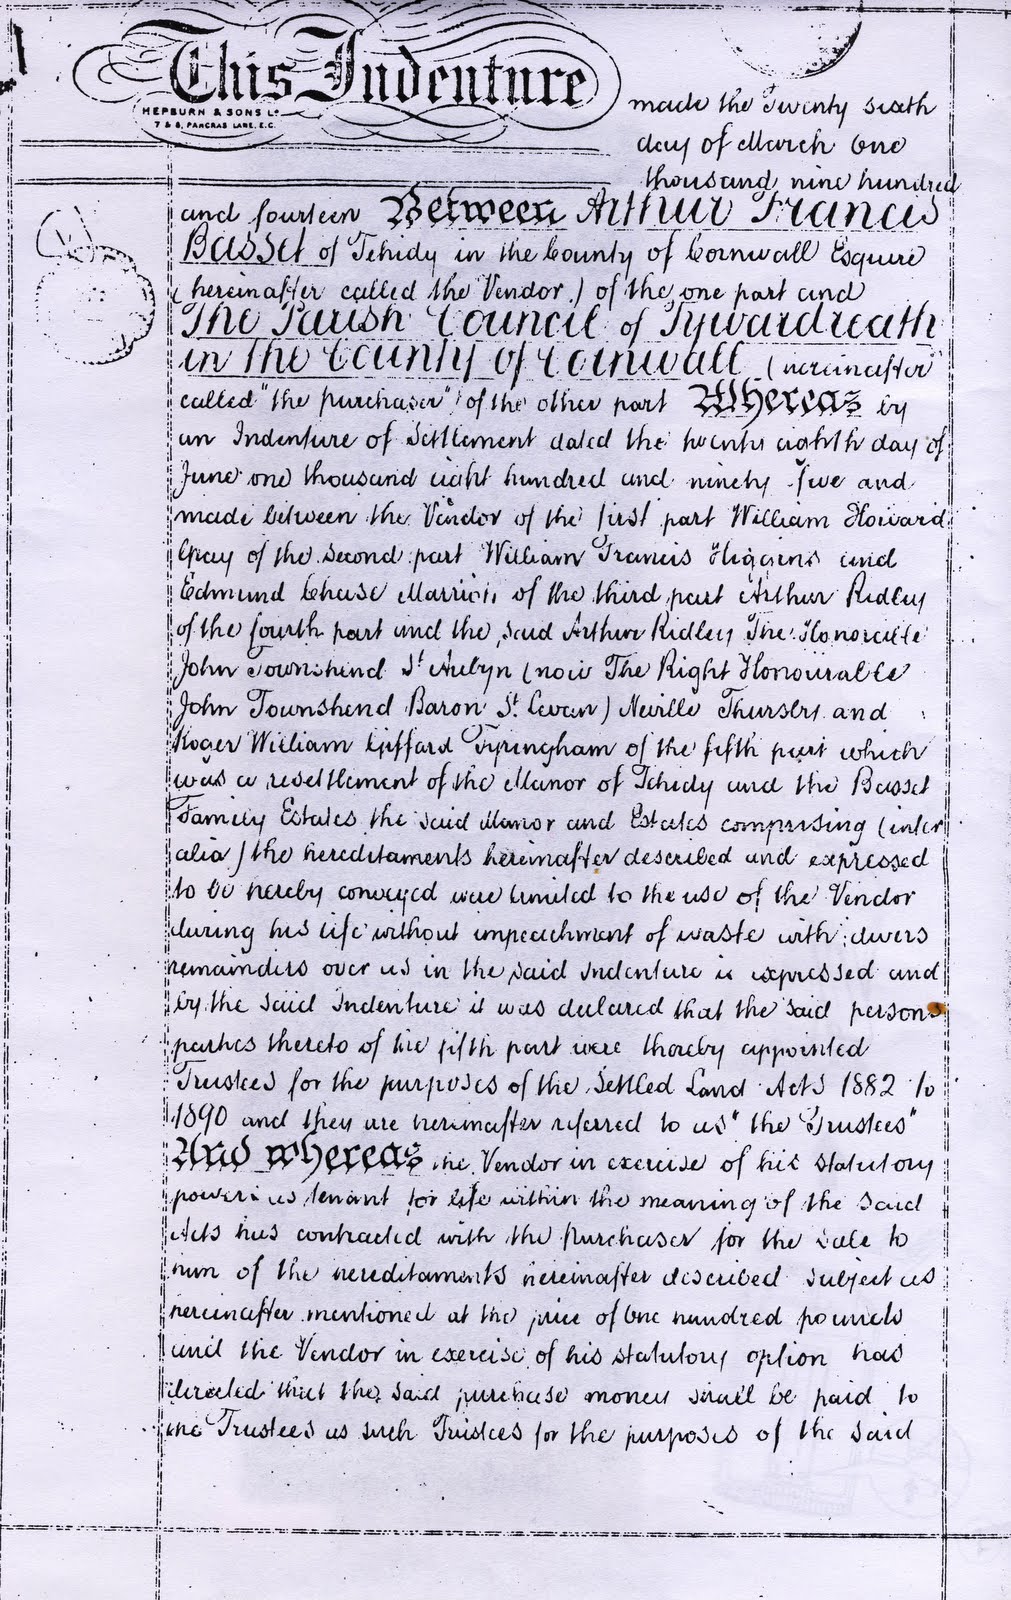 This Indenture
HEPBURN & SONS Ld
7 & 8, PANCRAS LANE, E.C.
made the Twenty sixth
day of March One
thousand nine hundred
and fourteen Between Arthur Francis
Basset of Tehidy in the County of Cornwall Esquire
(hereinafter called the Vendor) of the one part and
The Parish Council of Tywardreath
in the County of Cornwall (hereinafter
called "the purchaser") of the other part Whereas by
an Indenture of Settlement dated the twenty eighth day of
June one thousand eight hundred and ninety five and
made between the Vendor of the first part William Howard
Gray of the second part William Francis Higgins and
Edmund Chase Marriott of the third part Arthur Ridley
of the fourth part and the said Arthur Ridley The Honorable
John Townshend St Aubyn (now The Right Honourable
John Townshend Baron St. Levan) Neville Thursby and
Roger William Giffard Tyringham of the fifth part which
was a resettlement of the Manor of Tehidy and the Basset
Family Estates the said Manor and Estates comprising (inter
alia) the hereditaments hereinafter described and expressed
to be hereby conveyed were limited to the use of the Vendor
during his life without impeachment of waste with divers
remainders over as in the said Indenture is expressed and
by the said Indenture it was declared that the said persons
parties thereto of the fifth part were thereby appointed
Trustees for the purposes of the Settled Land Acts 1882 to
1890 and they are hereinafter referred to as "the Trustees"
And whereas the Vendor in exercise of his statutory
powers as tenant for life within the meaning of the said
Acts has contracted with the Purchaser for the sale to
him of the hereditaments hereinafter described subject as
hereinafter mentioned at the price of One hundred pounds
and the Vendor in exercise of his statutory option has
directed that the said purchase money shall be paid to
the Trustees as such Trustees for the purposes of the said